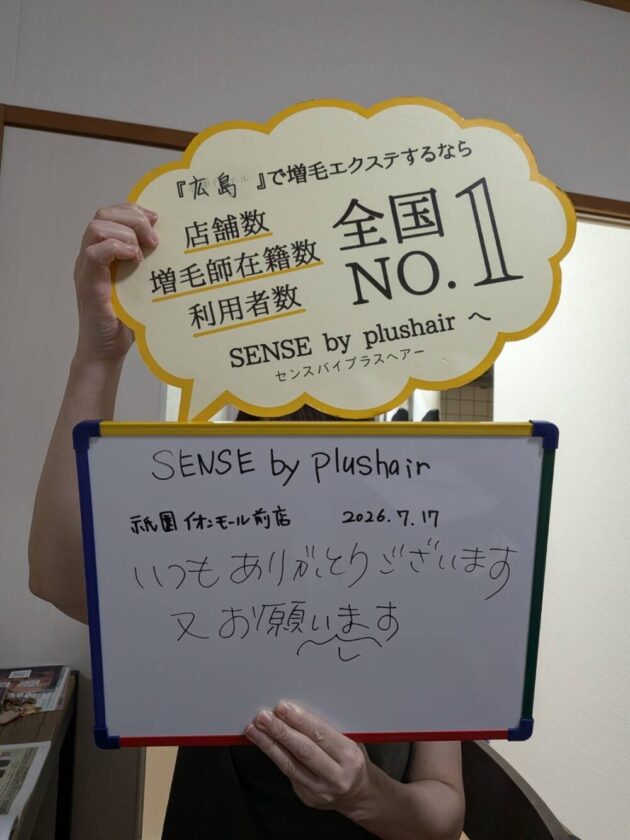 『広島』で増毛エクステするなら
店舗数
増毛師在籍数
利用者数
全国
NO.1
SENSE by plushair へ
センスバイプラスヘアー
SENSE by plushair
祇園イオンモール前店 2026.7.17
いつもありがとりございます
又お願います